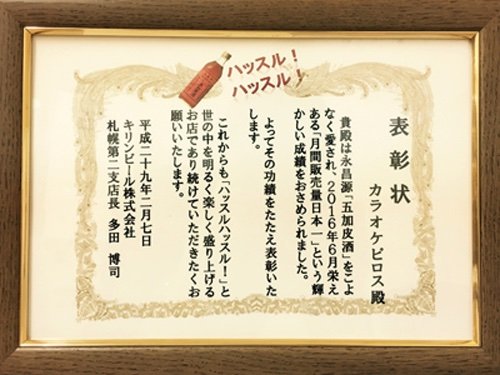 ハッスル！
ハッスル！
表彰状
カラオケピロス殿
貴殿は永昌源「五加皮酒」をこよ
なく愛され、2016年6月栄え
ある「月間販売量日本一」という輝
かしい成績をおさめられました。
よってその功績をたたえ表彰いた
します。
これからも「ハッスルハッスル！」と
世の中を明るく楽しく盛り上げる
お店であり続けていただきたくお
願いいたします。
平成二十九年二月七日
キリンビール株式会社
札幌第二支店長 多田 博司